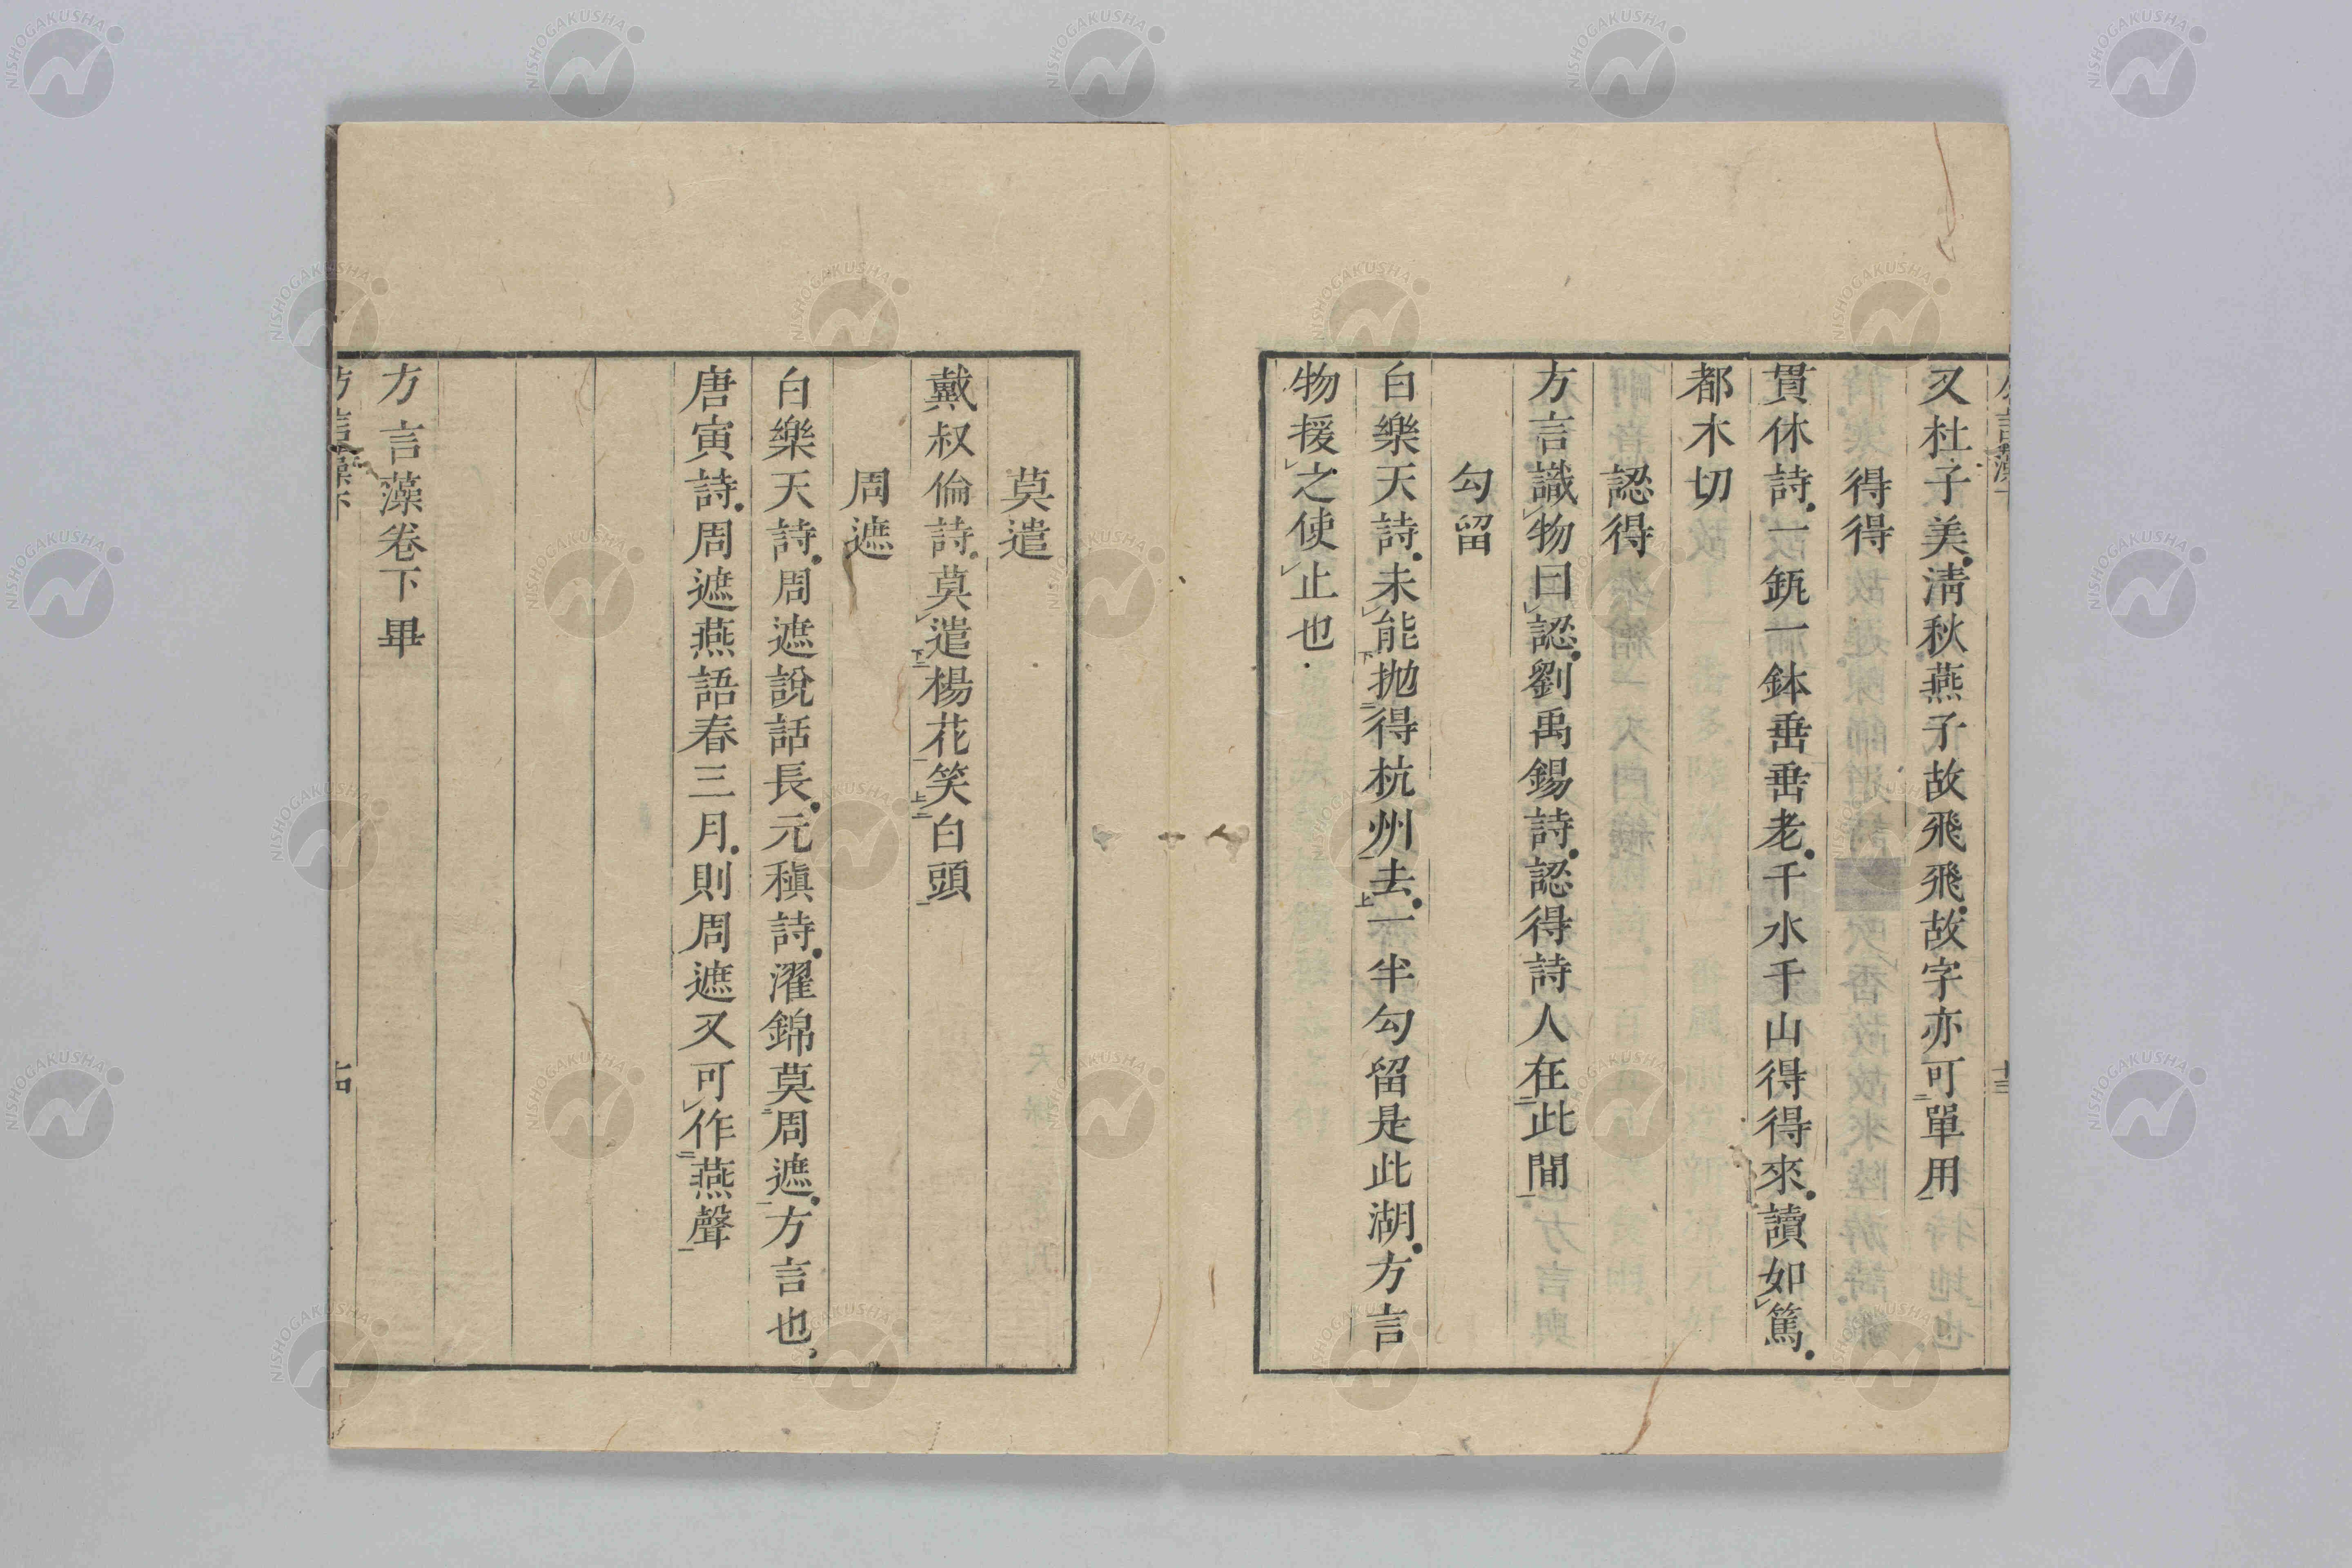 又杜子美清秋燕子故飛飛故字亦可單用
得得
貫休詩一缾一鉢垂垂老千水千山得得來讀如篤
都木切
認得
方言識物曰認劉禹錫詩認得詩人在此間
勾留
白樂天詩未能拋得杭州去一半勾留是此湖方言
物援之使止也
莫遣
戴叔倫詩莫遣楊花笑白頭
周遮
白樂天詩周遮說話長元稹詩濯錦莫周遮方言也
唐寅詩周遮燕語春三月則周遮又可作燕聲
方言藻卷下畢